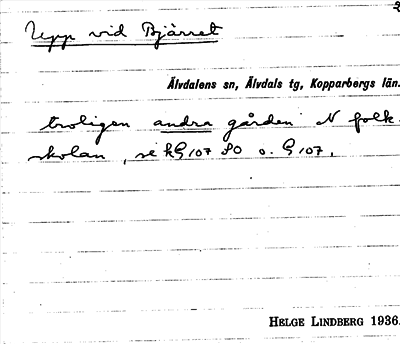 Upp vid Bjärret
Älvdalens sn, Älvdals tg, Kopparbergs län.
troligen andra gården N folk-
skolan, se kG 107 SO o. G 107.
HELGE LINDBERG 1936.